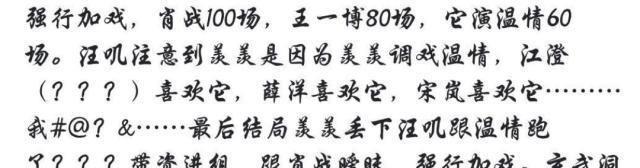 强行加戏，肖战100场，王一博80场，它演温情60
场。汪叽注意到羡羡是因为羡羡调戏温情，江澄
（？？？）喜欢它，薛洋喜欢它，宋岚喜欢它………
我#@？&……最后结局羡羡丢下汪叽跟温情跑
了？？？带资进组，跟肖战暧昧，强行加戏，玄武洞